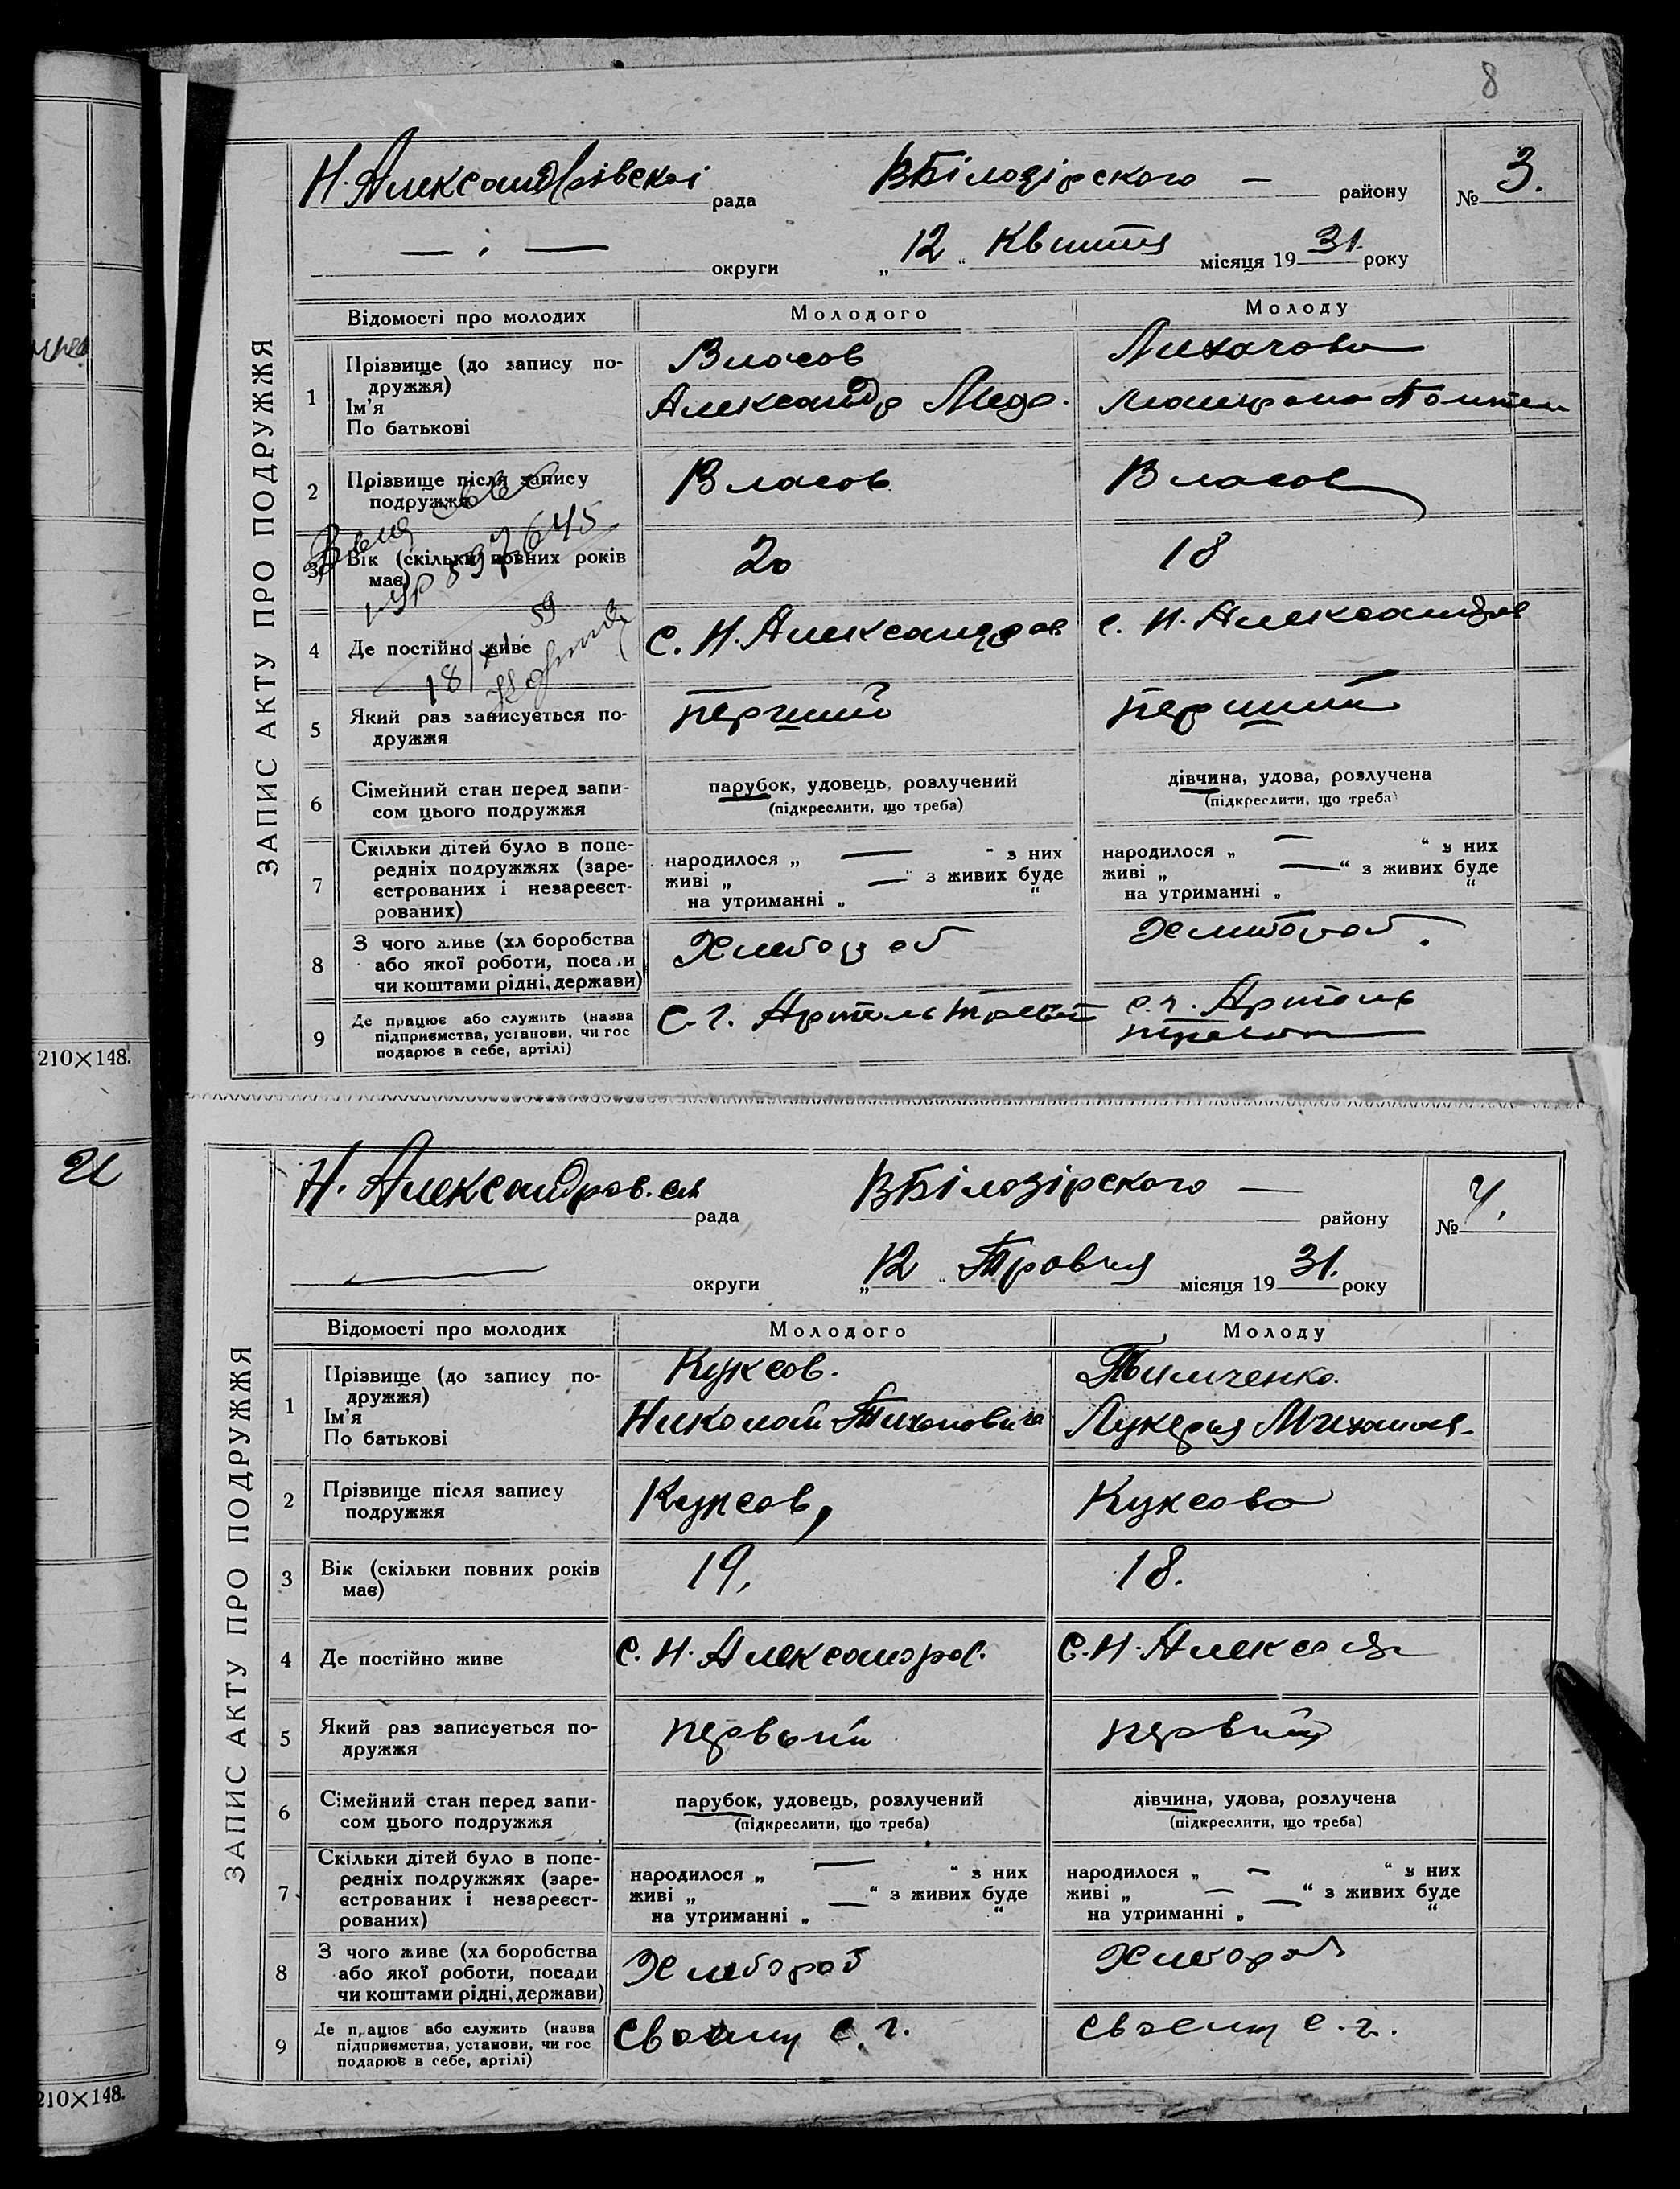 8
Н. Александрівскої рада
ВБілозірского — району
№ 3.
— . — округи
„ 12 “ Квитня місяця 19 31. року
ЗАПИС АКТУ ПРО ПОДРУЖЖЯ
Відомості про молодих
Молодого
Молоду
1
Прізвище (до запису по-
дружжя)
Ім'я
По батькові
Власов
Александр
Лихачова
2
Прізвище після запису
подружжя
Власов
Власов
3
Вік (скільки повних років
має)
20
18
4
Де постійно живе
с. Н. Александров
с. Н. Александров
5
Який раз записується по-
дружжя
перший
перший
6
Сімейний стан перед запи-
сом цього подружжя
парубок, удовець, розлучений
(підкреслити, що треба)
дівчина, удова, розлучена
(підкреслити, що треба)
7
Скільки дітей було в попе-
редніх подружжях (заре-
єстрованих і незареєст-
рованих)
народилося „ — “ з них
живі „ — “ з живих буде
на утриманні „ “
народилося „ — “ з них
живі „ — “ з живих буде
на утриманні „ “
8
З чого живе (хл боробства
або якої роботи, поса и
чи коштами рідні, держави)
Хлебороб
Хлибороб.
9
Де працює або служить (назва
підприємства, установи, чи гос
подарює в себе, артілі)
С.г. Артель
с.г. Артель
210×148.
Н. Александров. ск рада
ВБілозірского — району
№ 4.
— округи
„ 12 “ Травня місяця 19 31. року
ЗАПИС АКТУ ПРО ПОДРУЖЖЯ
Відомості про молодих
Молодого
Молоду
1
Прізвище (до запису по-
дружжя)
Ім'я
По батькові
Куксов.
Николай Тихонович
Тимченко.
Лукерия Михаил.
2
Прізвище після запису
подружжя
Куксов,
Куксова
3
Вік (скільки повних років
має)
19,
18.
4
Де постійно живе
С. Н. Александров.
С. Н. Александ
5
Який раз записується по-
дружжя
первый
первий
6
Сімейний стан перед запи-
сом цього подружжя
парубок, удовець, розлучений
(підкреслити, що треба)
дівчина, удова, розлучена
(підкреслити, що треба)
7
Скільки дітей було в попе-
редніх подружжях (заре-
єстрованих і незареєст-
рованих)
народилося „ — “ з них
живі „ — “ з живих буде
на утриманні „ “
народилося „ — “ з них
живі „ — “ з живих буде
на утриманні „ “
8
З чого живе (хл боробства
або якої роботи, посади
чи коштами рідні, держави)
Хлебороб
Хлебороб
9
Де працює або служить (назва
підприємства, установи, чи гос
подарює в себе, артілі)
Своему с. г.
Своему с. г.
210×148.